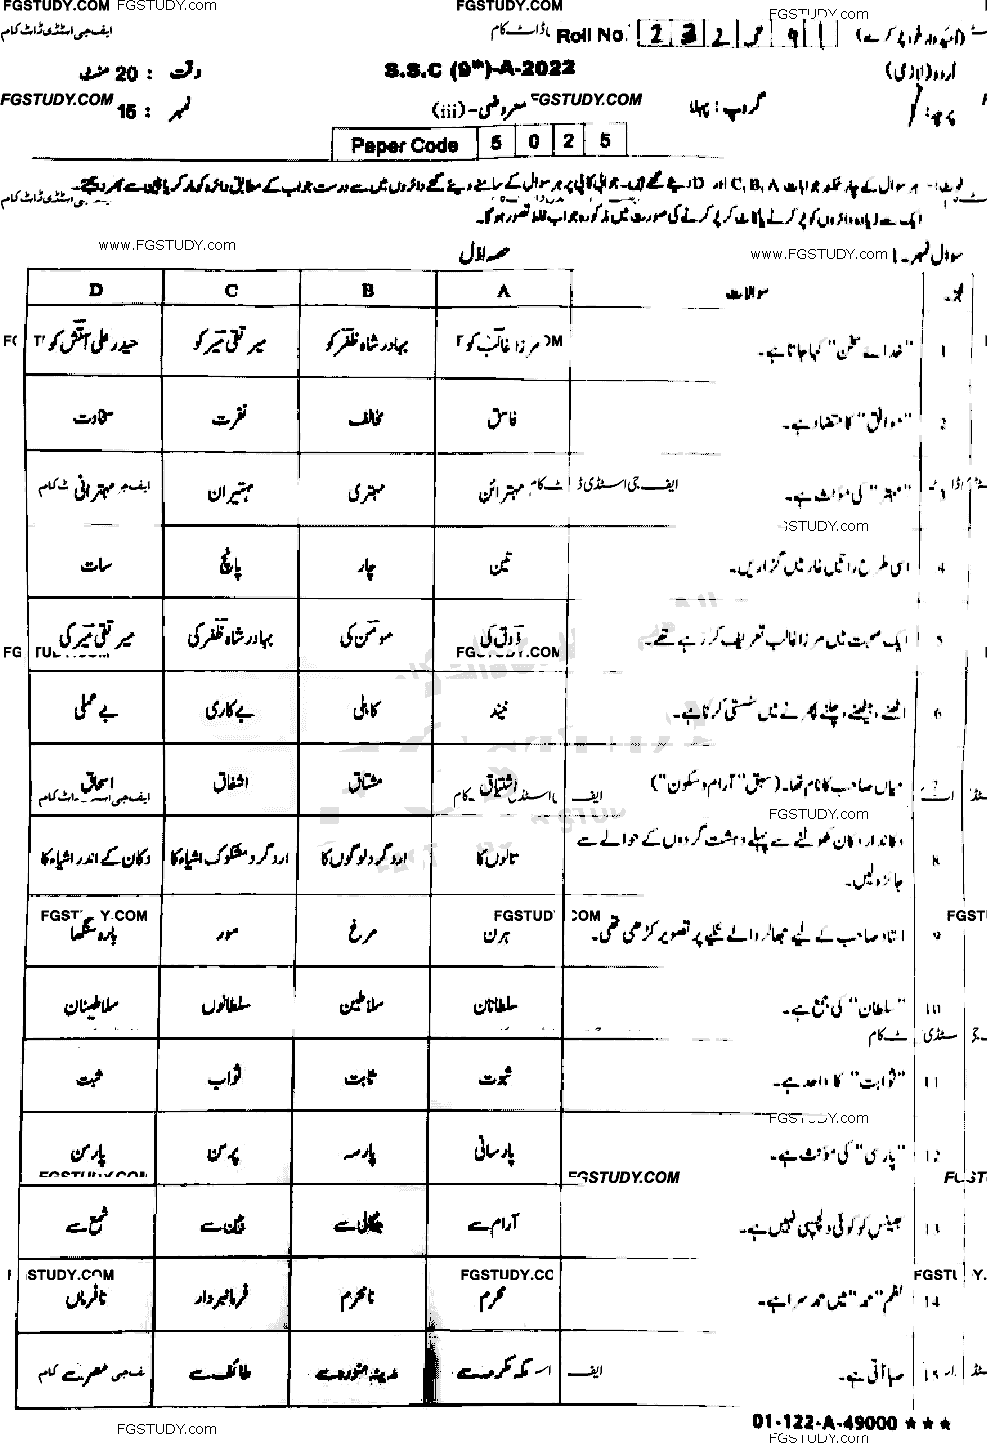 FGSTUDY.COM FGSTUDY.com FGSTUDY.COM FGSTUDY.com
ایف جی اسٹڈی ڈاٹ کام ڈاٹ کام Roll No
وقت : 20 منٹ S.S.C (9th)-A-2022 اردو (لازمی)
FGSTUDY.COM نمبر : 15 معروضی-(iii) FGSTUDY.COM گروپ : پہلا پرچہ : I
Paper Code 5 0 2 5
نوٹ:- ہر سوال کے چار ممکنہ جوابات A ,B ,C اور D دیئے گئے ہیں۔ جوابی کاپی پر ہر سوال کے سامنے دیئے گئے دائروں میں سے درست جواب کے مطابق دائرہ کو مارکر یا پین سے بھر دیجئے۔
ایک سے زیادہ دائروں کو پر کرنے یا کاٹ کر پر کرنے کی صورت میں مذکورہ جواب غلط تصور ہو گا۔
www.FGSTUDY.com حصہ اول www.FGSTUDY.com سوال نمبر۔ 1
سوالات A B C D
1 "خدائے سخن" کہا جاتا ہے۔ مرزا غالب کو بہادر شاہ ظفر کو میر تقی میر کو حیدر علی آتش کو
2 "موافق" کا متضاد ہے۔ فاسق مخالف نفرت سخاوت
3 "مہتر" کی مؤنث ہے۔ مہترائن مہتری مہتیران مہترانی
FGSTUDY.com
4 اسی طرح راتیں غار میں گزاریں۔ تین چار پانچ سات
5 ایک صحبت میں مرزا غالب تعریف کر رہے تھے۔ ذوق کی مومن کی بہادر شاہ ظفر کی میر تقی میر کی
FGSTUDY.COM
6 اٹھنے، بیٹھنے، چلنے پھرنے میں سستی کرنا ہے۔ نیند کاہلی بے کاری بے عملی
7 میاں صاحب کا نام تھا۔ (سبق "آرام و سکون") اشتیاق مشتاق اشفاق اسحاق
FGSTUDY.com
8 دکاندار دکان کھولنے سے پہلے دہشت گردوں کے حوالے سے جائزہ لیں۔ تالوں کا اردگرد لوگوں کا اردگرد مشکوک اشیاء کا دکان کے اندر اشیاء کا
9 استاد صاحب کے لیے جھالر والے تکیے پر تصویر کڑھی تھی۔ ہرن مرغ مور بارہ سنگھا
10 "سلطان" کی جمع ہے۔ سلطانان سلاطین سلطانوں سلاطینان
11 "ثوابت" کا واحد ہے۔ ثبوت ثابت ثواب ثبت
FGSTUDY.com
12 "پارسی" کی مؤنث ہے۔ پارسائی پارسہ پرسن پارسن
FGSTUDY.COM FGSTUDY.COM
13 بھینس کو کوئی دلچسپی نہیں ہے۔ آرام سے جگالی سے بین سے شمع سے
FGSTUDY.COM FGSTUDY.COM
14 نظم "حمد" میں حمد سرا ہے۔ محرم نامحرم فرمانبردار نافرماں
15 صبا آتی ہے۔ مکہ مکرمہ سے مدینہ منورہ سے طائف سے مصر سے
FGSTUDY.com 01-122-A-49000 ★ ★ ★
FGSTUDY.com